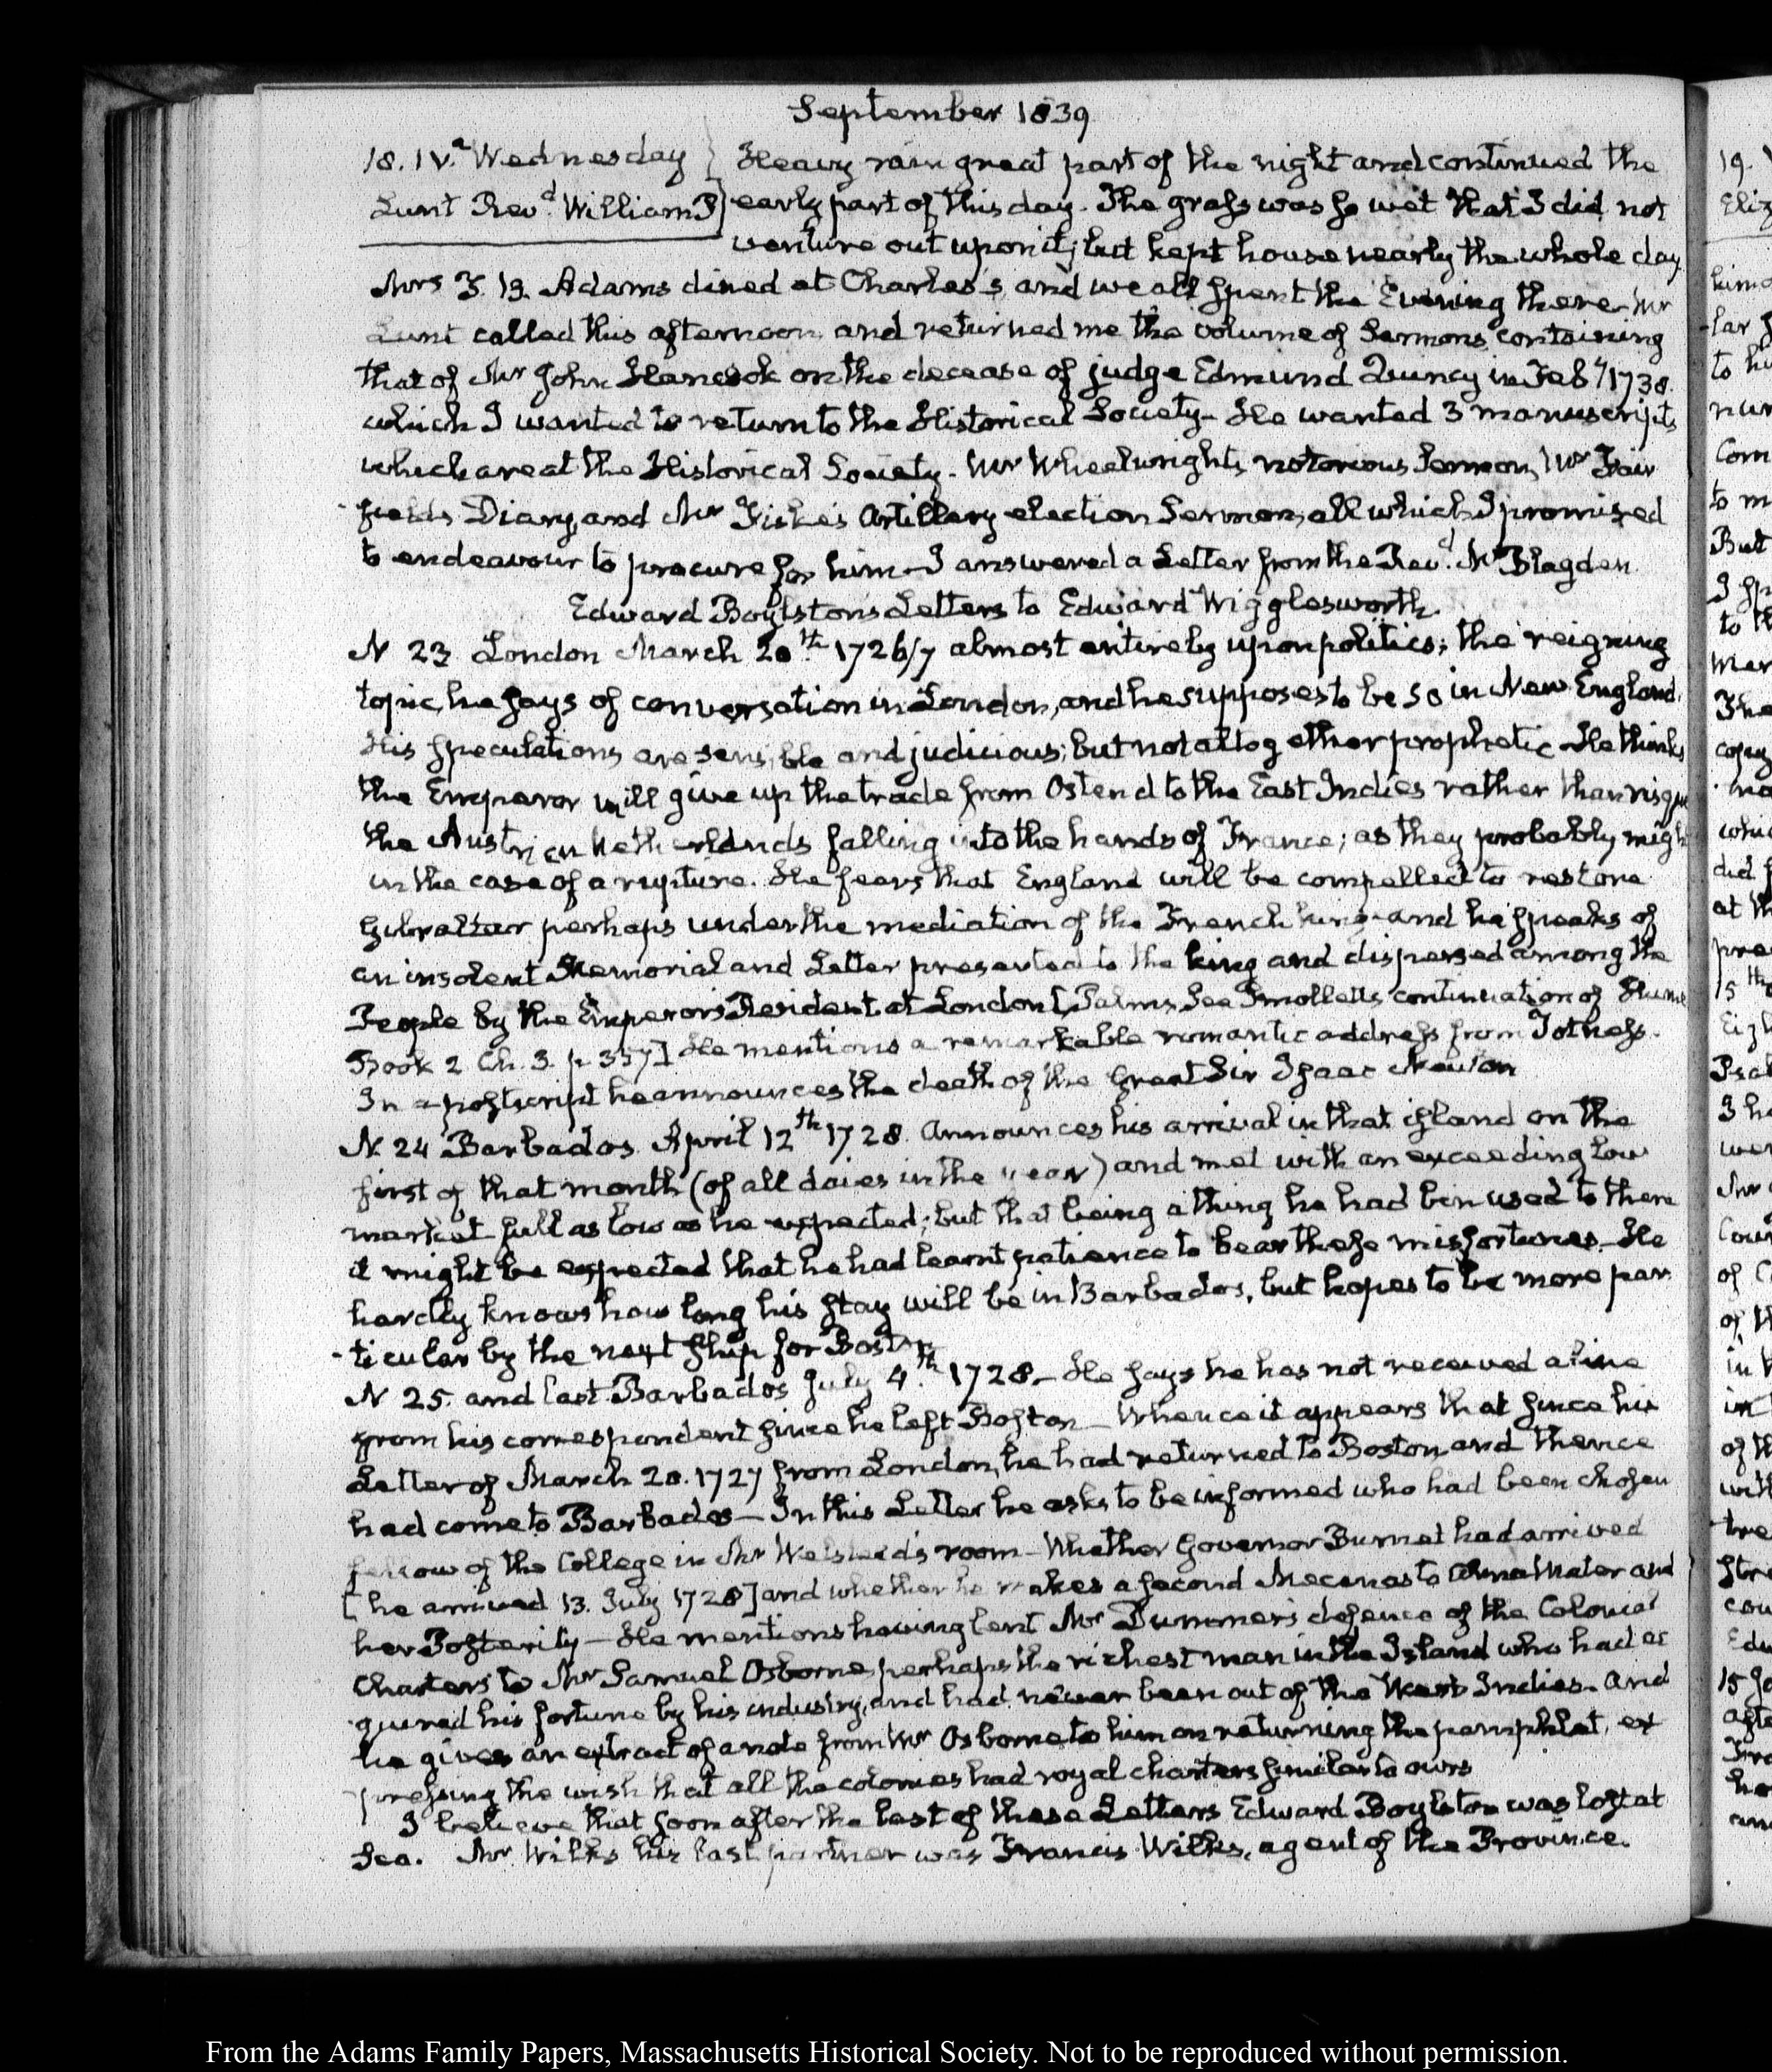 September 1839
18. IV.a Wednesday } Heavy rain great part of the night and continued the
Lunt Revd. William P } early part of this day. The grass was so wet that I did not
venture out upon it; but kept house nearly the whole day
Mrs J. B. Adams dined at Charles's, and we all spent the Evening there. Mr
Lunt called this afternoon and returned me the volume of Sermons containing
that of Mr John Hancock on the decease of judge Edmund Quincy in Feby 1738.
which I wanted to return to the Historical Society. He wanted 3 manuscripts
which are at the Historical Society. Mr Wheelwright's notorious Sermon, Mr Fair
fields Diary, and Mr Fiske's Artillery election Sermon, all which I promised
to endeavour to procure for him. I answered a Letter from the Revd. Mr Blagden
Edward Boylstons Letters to Edward Wigglesworth.
N 23 London March 20th 1726/7 almost entirely upon politics; the reigning
topic, he says of conversation in London, and he supposes to be so in New England.
His speculations are sensible and judicious; but not altogether prophetic. He thinks
the Emperor will give up the trade from Ostend to the East Indies rather than risque
the Austrian Netherlands falling into the hands of France; as they probably might
in the case of a rupture. He fears that England will be compelled to restore
Gibraltar perhaps under the mediation of the French king and he speaks of
an insolent Memorial and Letter presented to the king and dispersed among the
People by the Emperor's Resident at London [Palms, See Smolletts continuation of Hume
Book 2 Ch. 3. p 357] He mentions a remarkable romantic address from Totness.
In a postscript he announces the death of the Great Sir Isaac Newton
N. 24 Barbados April 12th 1728. Announces his arrival in that island on the
first of that month (of all daies in the year) and met with an exceeding low
market full as low as he expected; but that being a thing he had ben used to there
it might be expected that he had learnt patience to bear these misfortunes. He
hardly knows how long his stay will be in Barbados, but hopes to be more par
-ticular by the next ship for Boston
N 25. and last Barbados July 4th. 1728. He says he has not received a line
from his correspondent since he left Boston. Whence it appears that since his
Letter of March 20. 1727 from London, he had returned to Boston, and thence
had come to Barbados. In this Letter he asks to be informed who had been chosen
fellow of the College in Mr Welsteed's room. Whether Governor Burnet had arrived
[he arrived 13. July 1728] and whether he makes a second Mecenas to Alma Mater and
her Posterity. He mentions having lent Mr Dummer's defence of the Colonial
Charters to Mr Samuel Osborne, perhaps the richest man in the Island who had ac
quired his fortune by his industry, and had never been out of the West Indies. And
he gives an extract of a note from Mr Osborne to him on returning the pamphlet, ex
pressing the wish that all the colonies had royal charters similar to ours
I believe that soon after the last of these Letters Edward Boylston was lost at
Sea. Mr Wilks his last partner was Francis Wilks, agent of the Province.
From the Adams Family Papers, Massachusetts Historical Society. Not to be reproduced without permission.